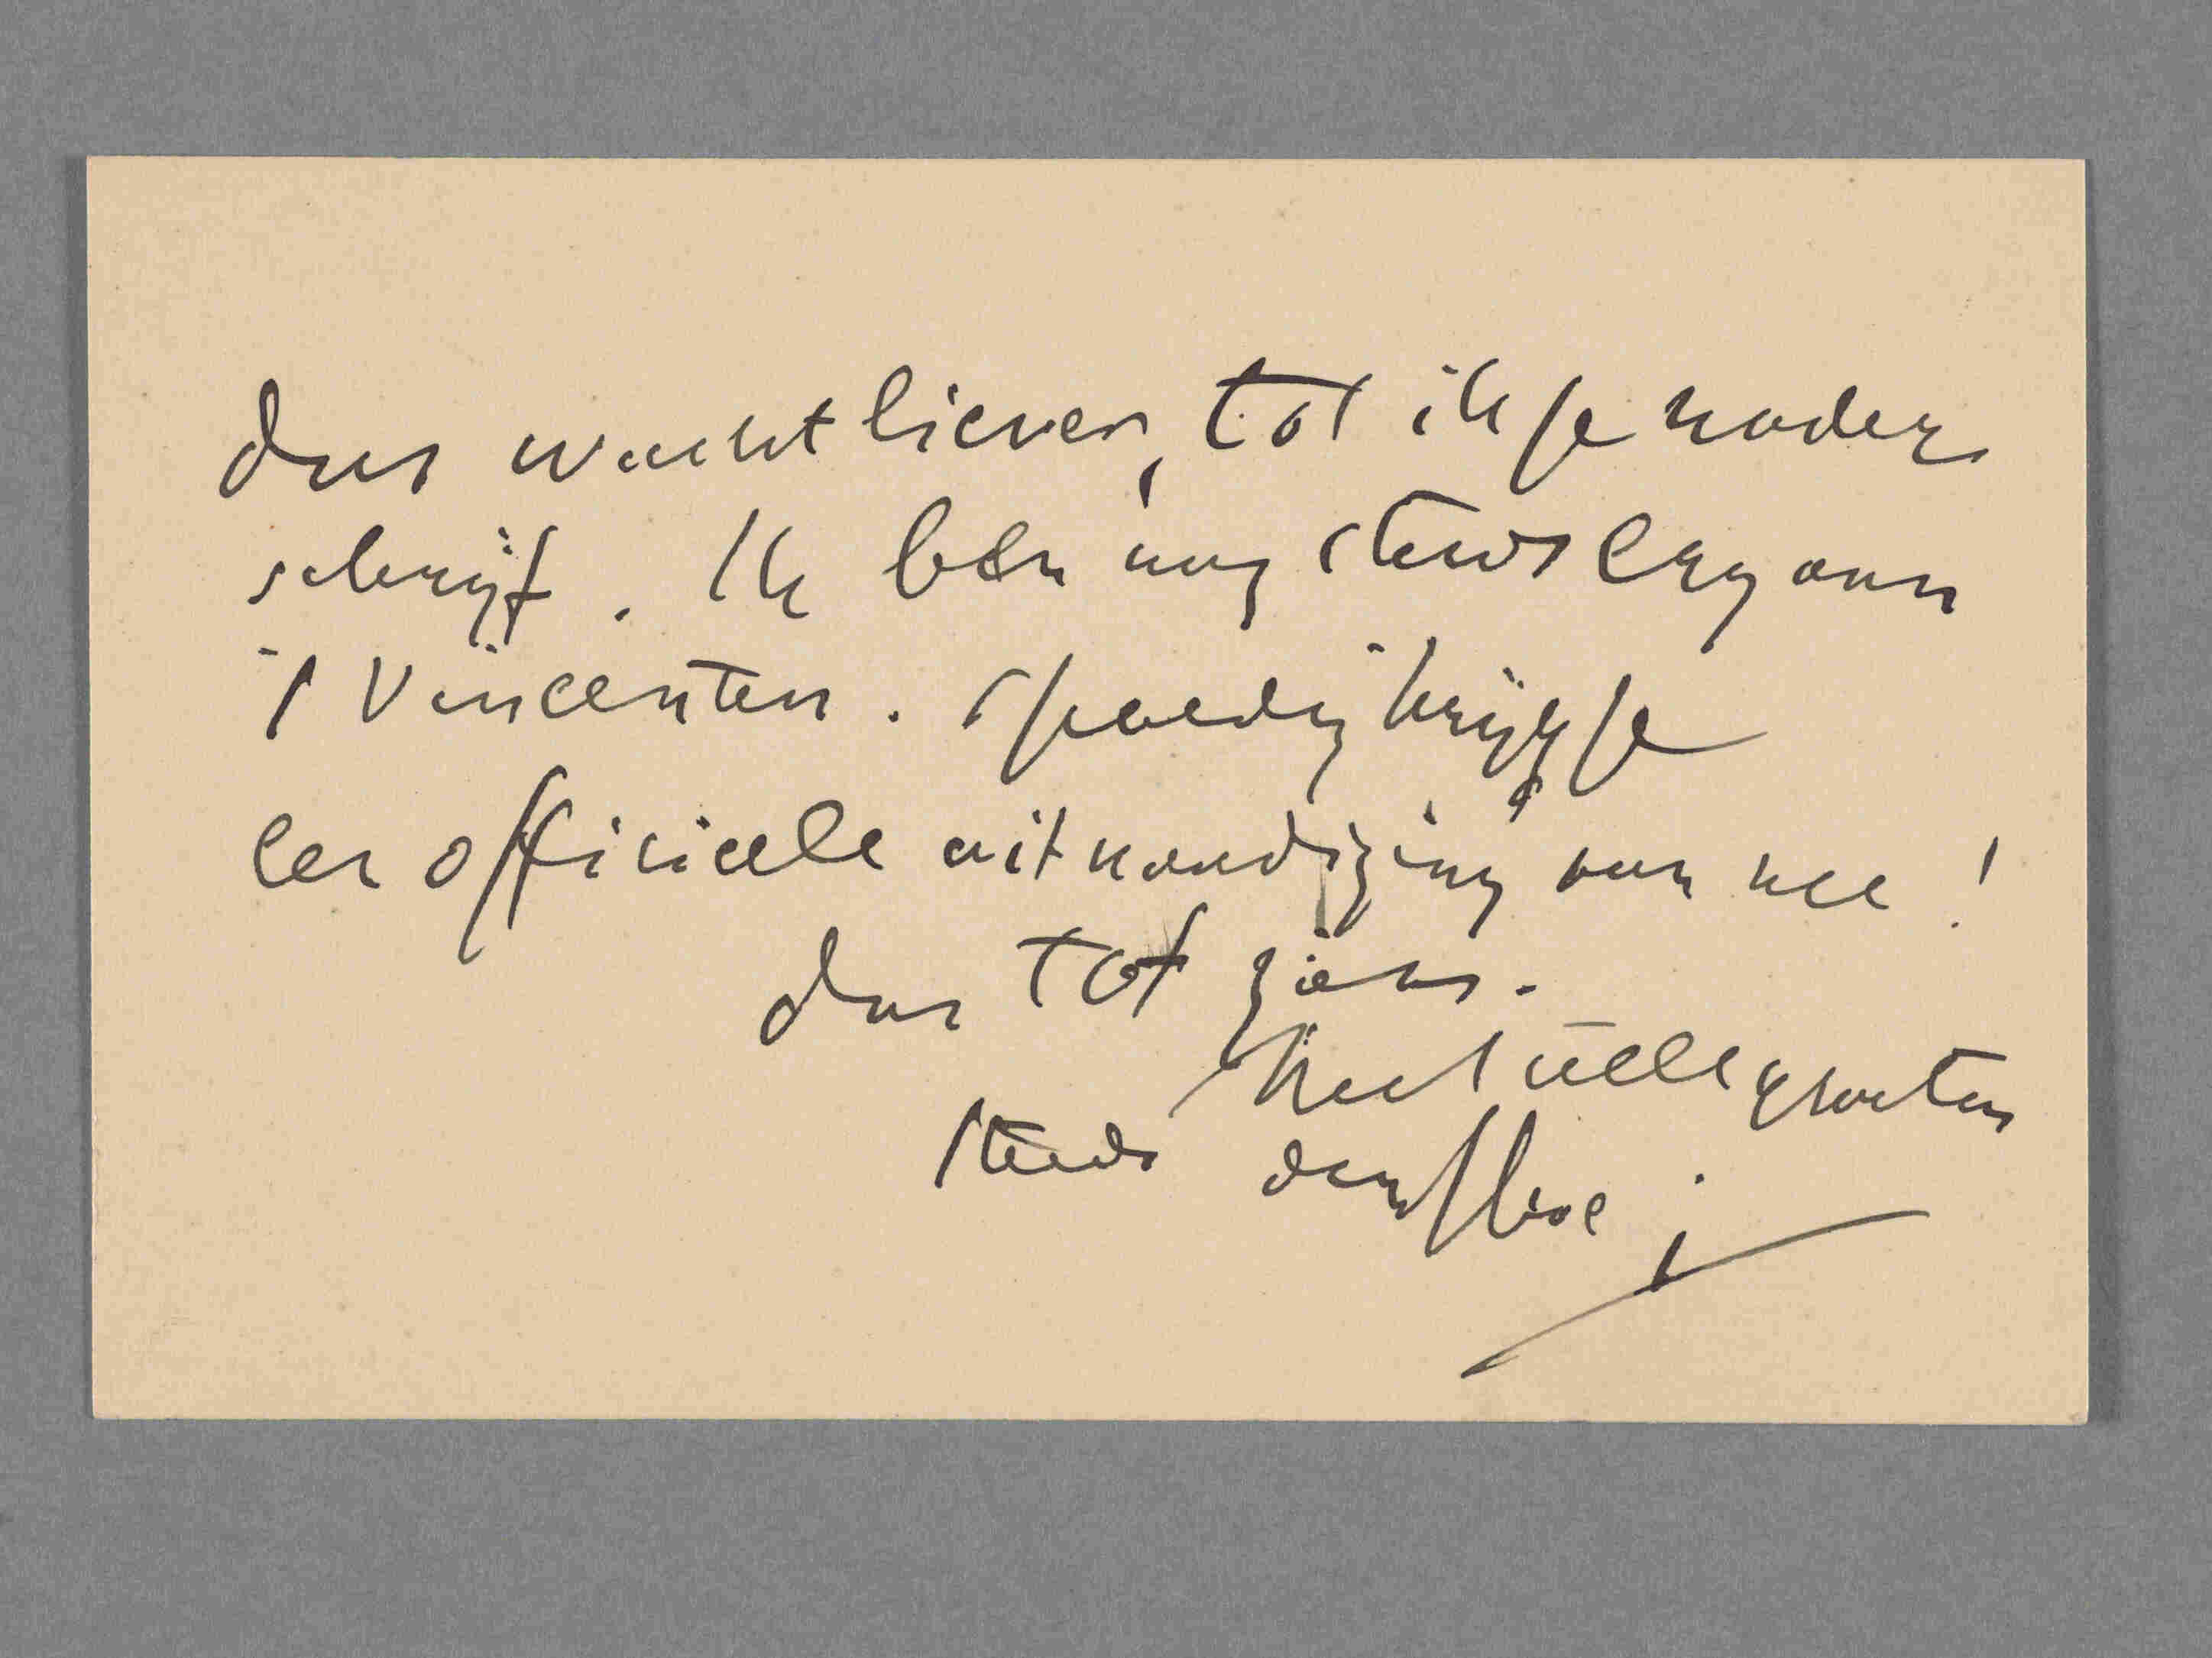 dus wacht liever, tot ik je nader
schrijf. Ik ben nog steeds erg aan
't Vincenten. Spoedig krijg je
een officieele uitnoodiging van me!
dus tot ziens.
Met veele groeten
steeds